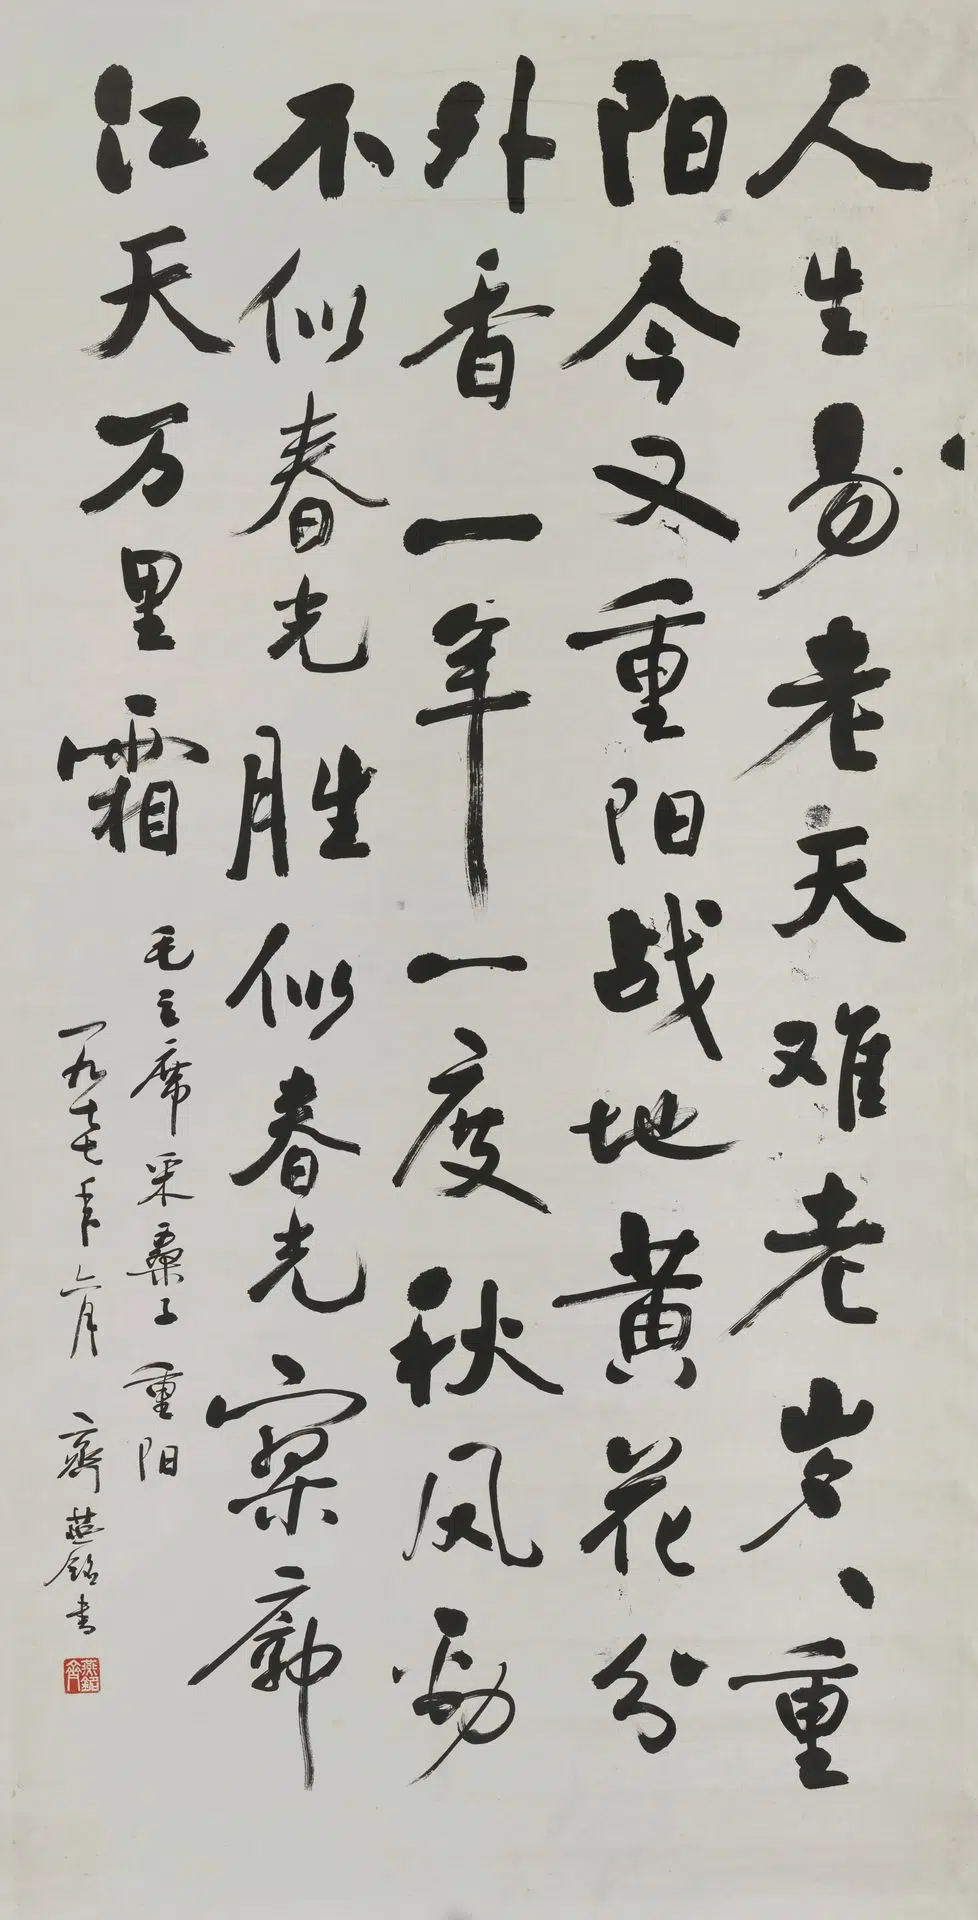 人生易老天难老岁、重
阳今又重阳战地黄花分
外香一年一度秋风劲
不似春光胜似春光寥廓
江天万里霜
毛主席采桑子 重阳
一九七七年六月 齊燕銘书